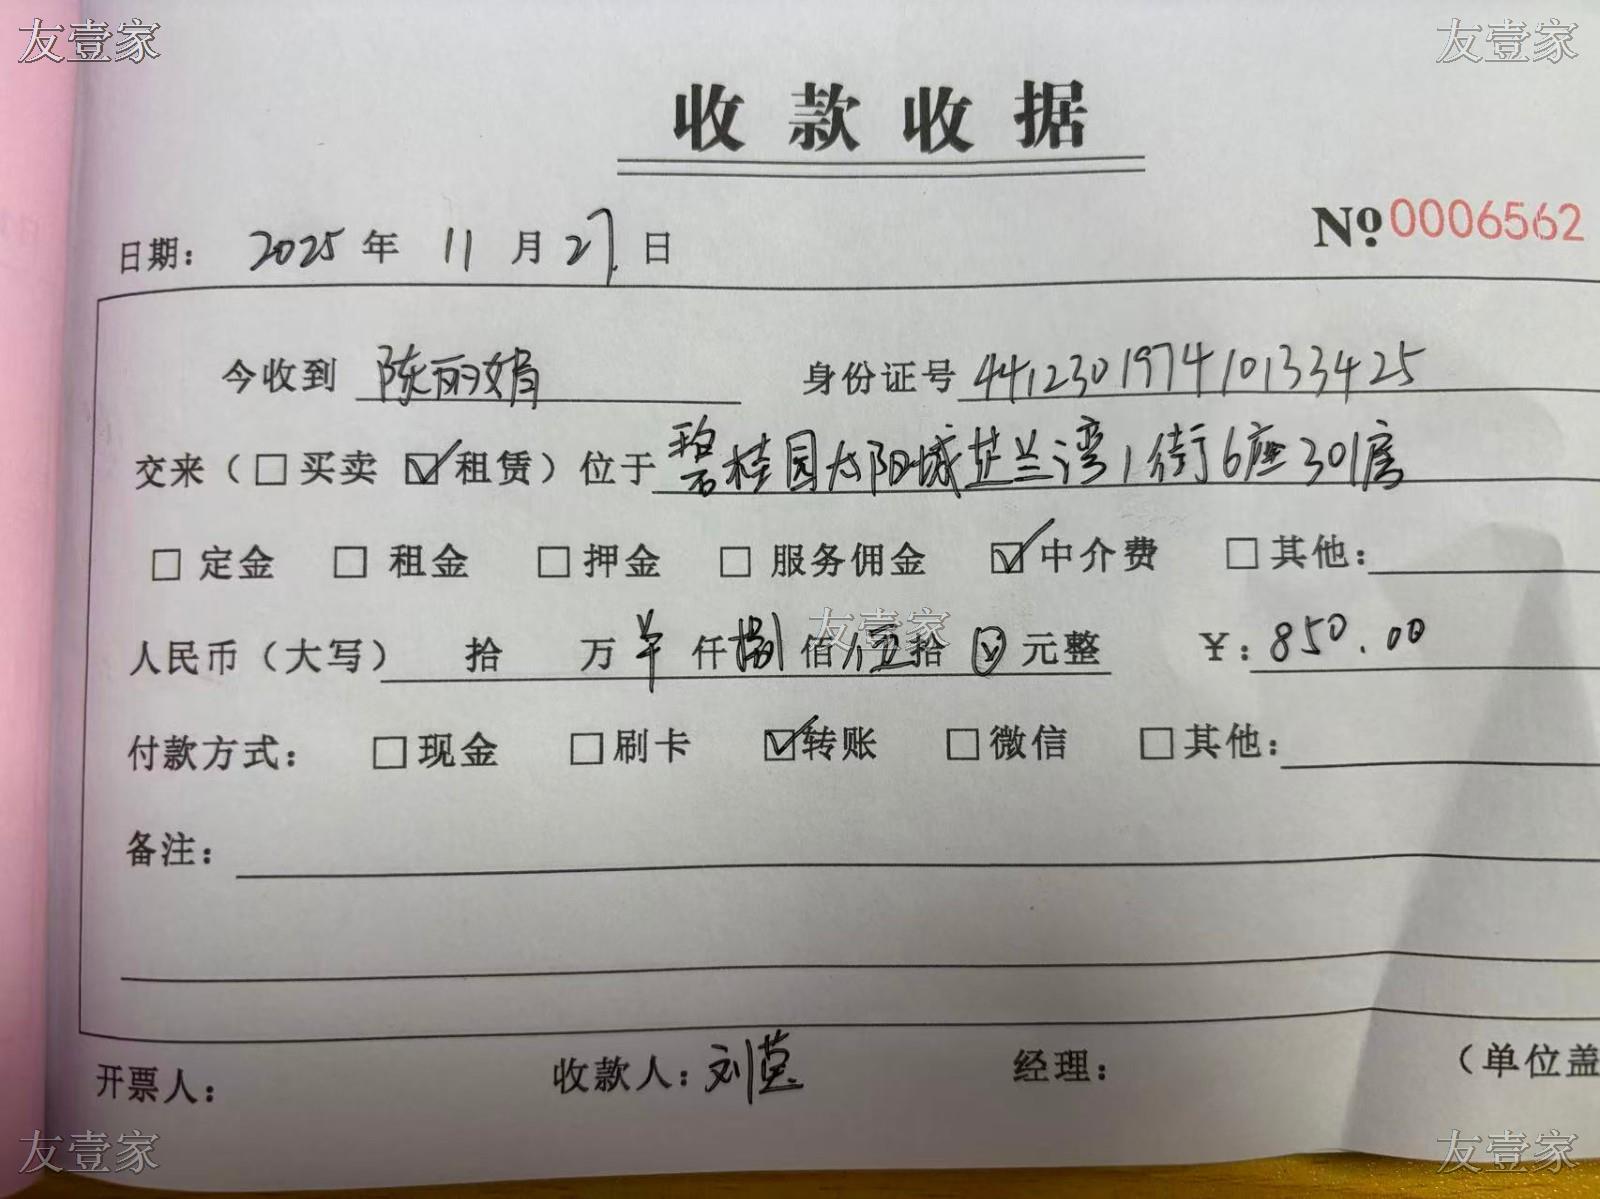 友壹家 友壹家
收款收据
No 0006562
日期： 2025 年 11 月 27. 日
今收到 陈丽娟 身份证号 441230197410133425
交来（□买卖 ☑租赁）位于 碧桂园太阳城芷兰湾1街6座301房
□ 定金 □ 租金 □ 押金 □ 服务佣金 ☑中介费 □ 其他：
友壹家
人民币（大写） 拾 万 仟 捌 佰 伍 拾 元整 ¥：850.00
付款方式： □现金 □刷卡 ☑转账 □微信 □其他：
备注：
开票人： 收款人：刘 经理： （单位盖
友壹家 友壹家